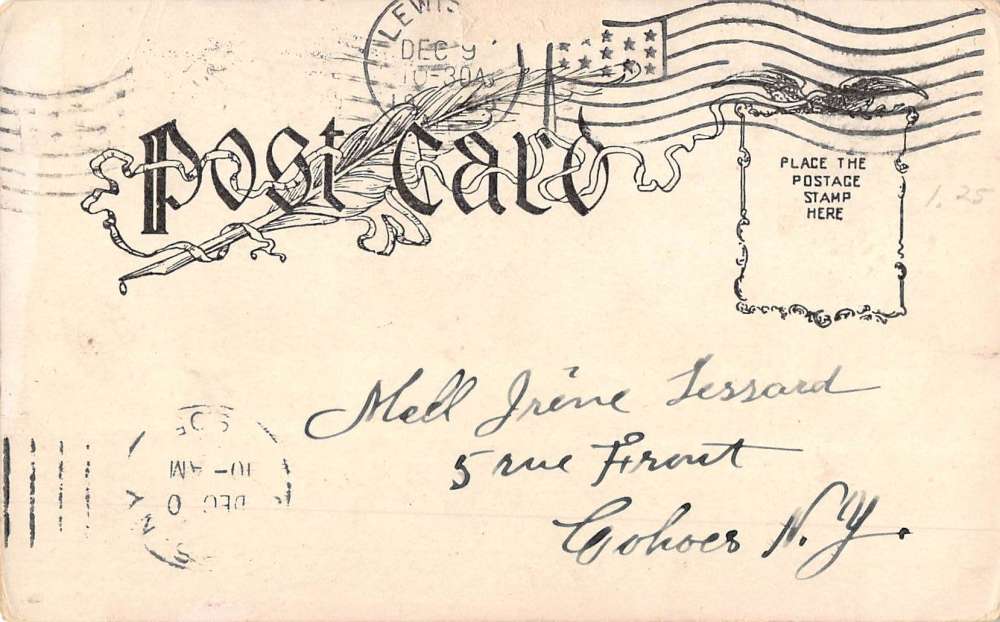 LEWIS
DEC 9
10-30A
Post Card
PLACE THE
POSTAGE
STAMP
HERE
1.25
Mell Irène Lessard
5 rue Front
Cohoes N.Y.
DEC
10-AM